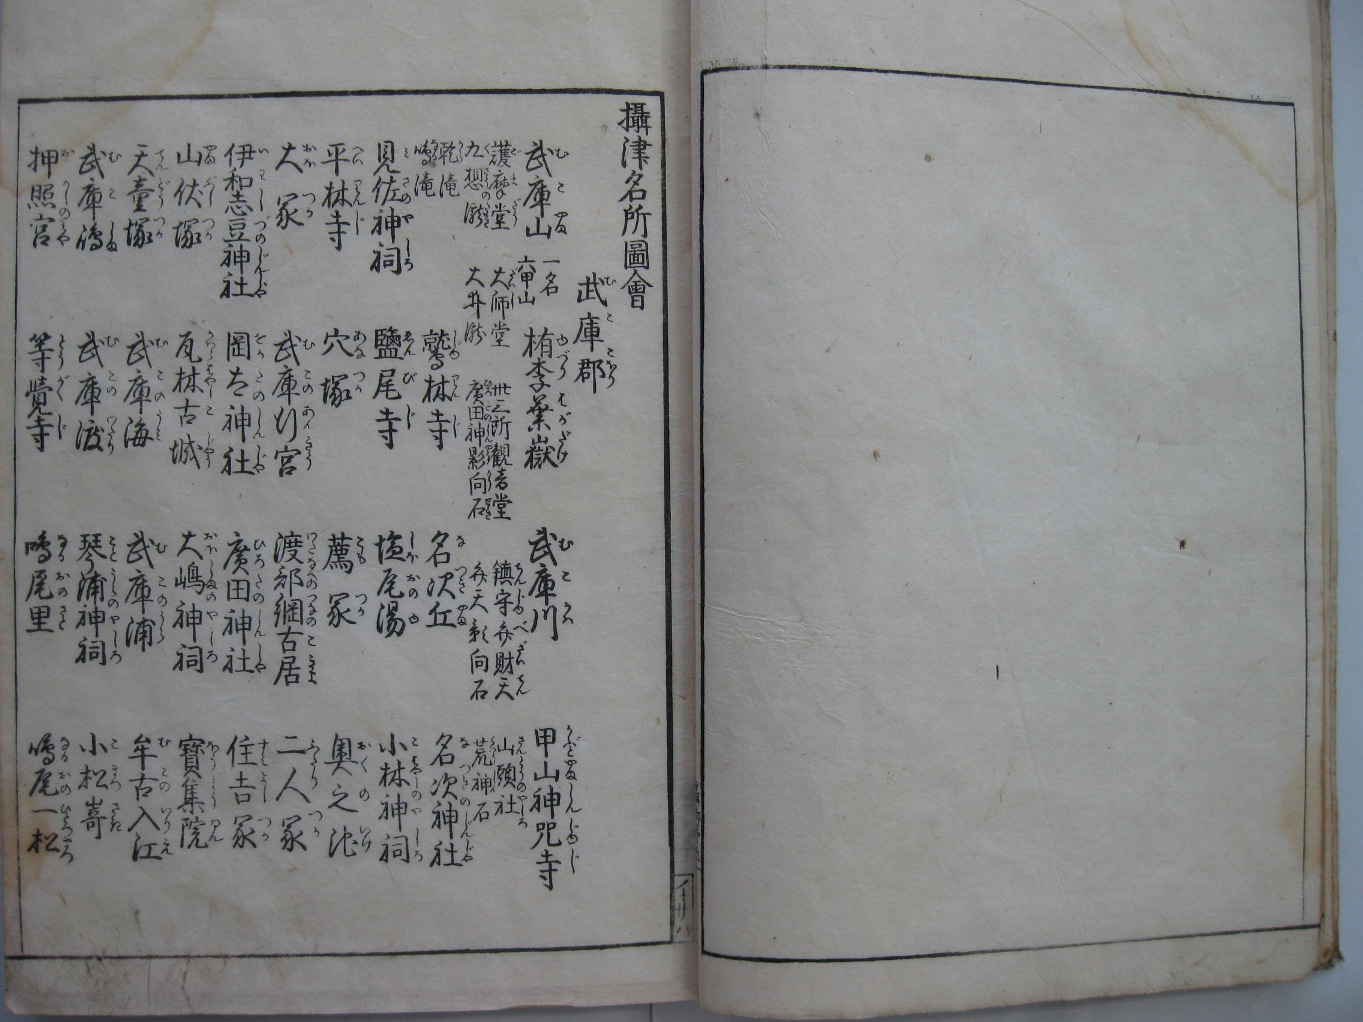 攝津名所圖會
武庫郡
武庫山 一名六甲山 楢李葉嶽 武庫川 甲山神咒寺
護摩堂 大師堂 卅三所觀音堂 鎮守弁財天 山頭社
九想瀧 大井瀧 廣田神影向石 弁天影向石 荒神石
乾滝 鷲林寺 名次丘 名次神社
鳴滝
見佐神祠 鹽尾寺 塩尾湯 小林神祠
平林寺 穴塚 薦冢 奥之池
大冢 武庫行宮 渡邉綱古居 二人冢
伊和志豆神社 岡太神社 廣田神社 住吉冢
山伏塚 瓦林古城 大嶋神祠 寶集院
天童塚 武庫海 武庫浦 牟古入江
武庫嶋 武庫渡 琴浦神祠 小松嵜
押照宮 等覺寺 鳴尾里 鳴尾一松